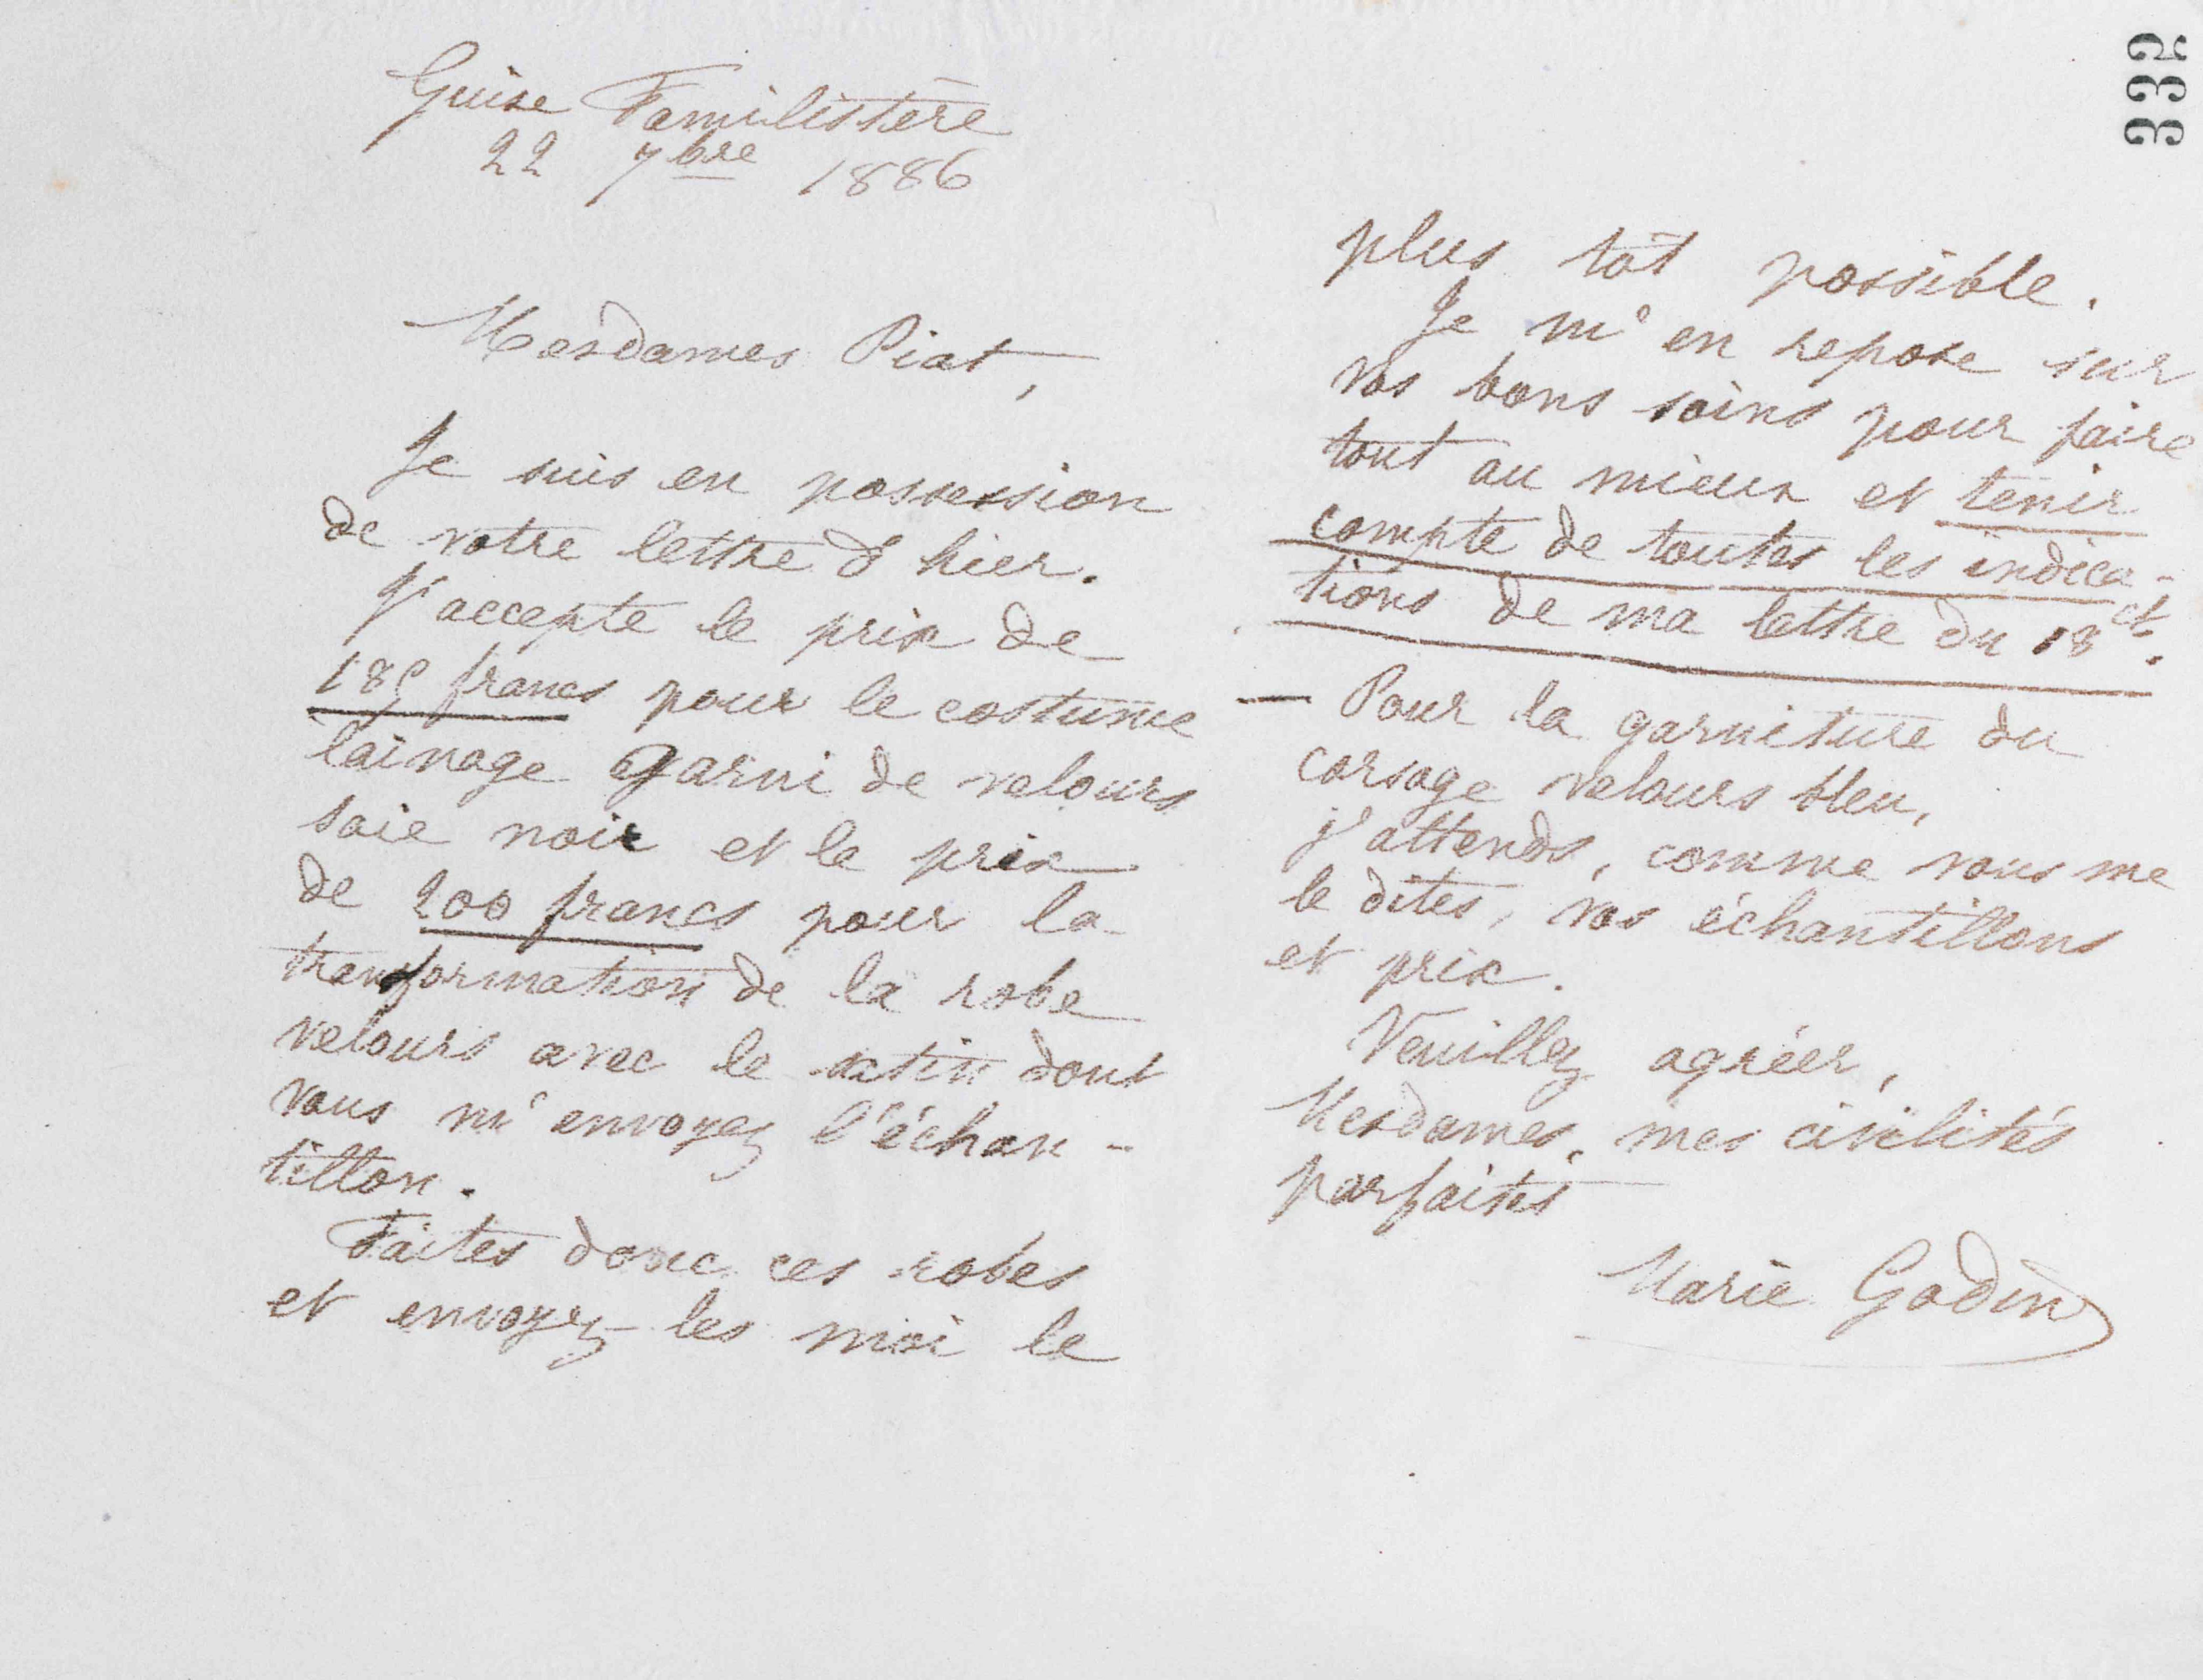 332
Guise Familistère
22 7bre 1886
Mesdames Piat,
Je suis en possession
de votre lettre d'hier.
J'accepte le prix de
185 francs pour le costume
lainage garni de velours
soie noir et le prix
de 200 francs pour la
transformation de la robe
velours avec le satin dont
vous m'envoyez l'échan-
tillon.
Faites donc ces robes
et envoyez-les moi le
plus tôt possible.
Je m'en repose sur
vos bons soins pour faire
tout au mieux et tenir
compte de toutes les indica-
tions de ma lettre du 18 ct.
— Pour la garniture du
corsage velours bleu,
j'attends, comme vous me
le dites, vos échantillons
et prix.
Veuillez agréer,
Mesdames, mes civilités
parfaites
Marie Godin